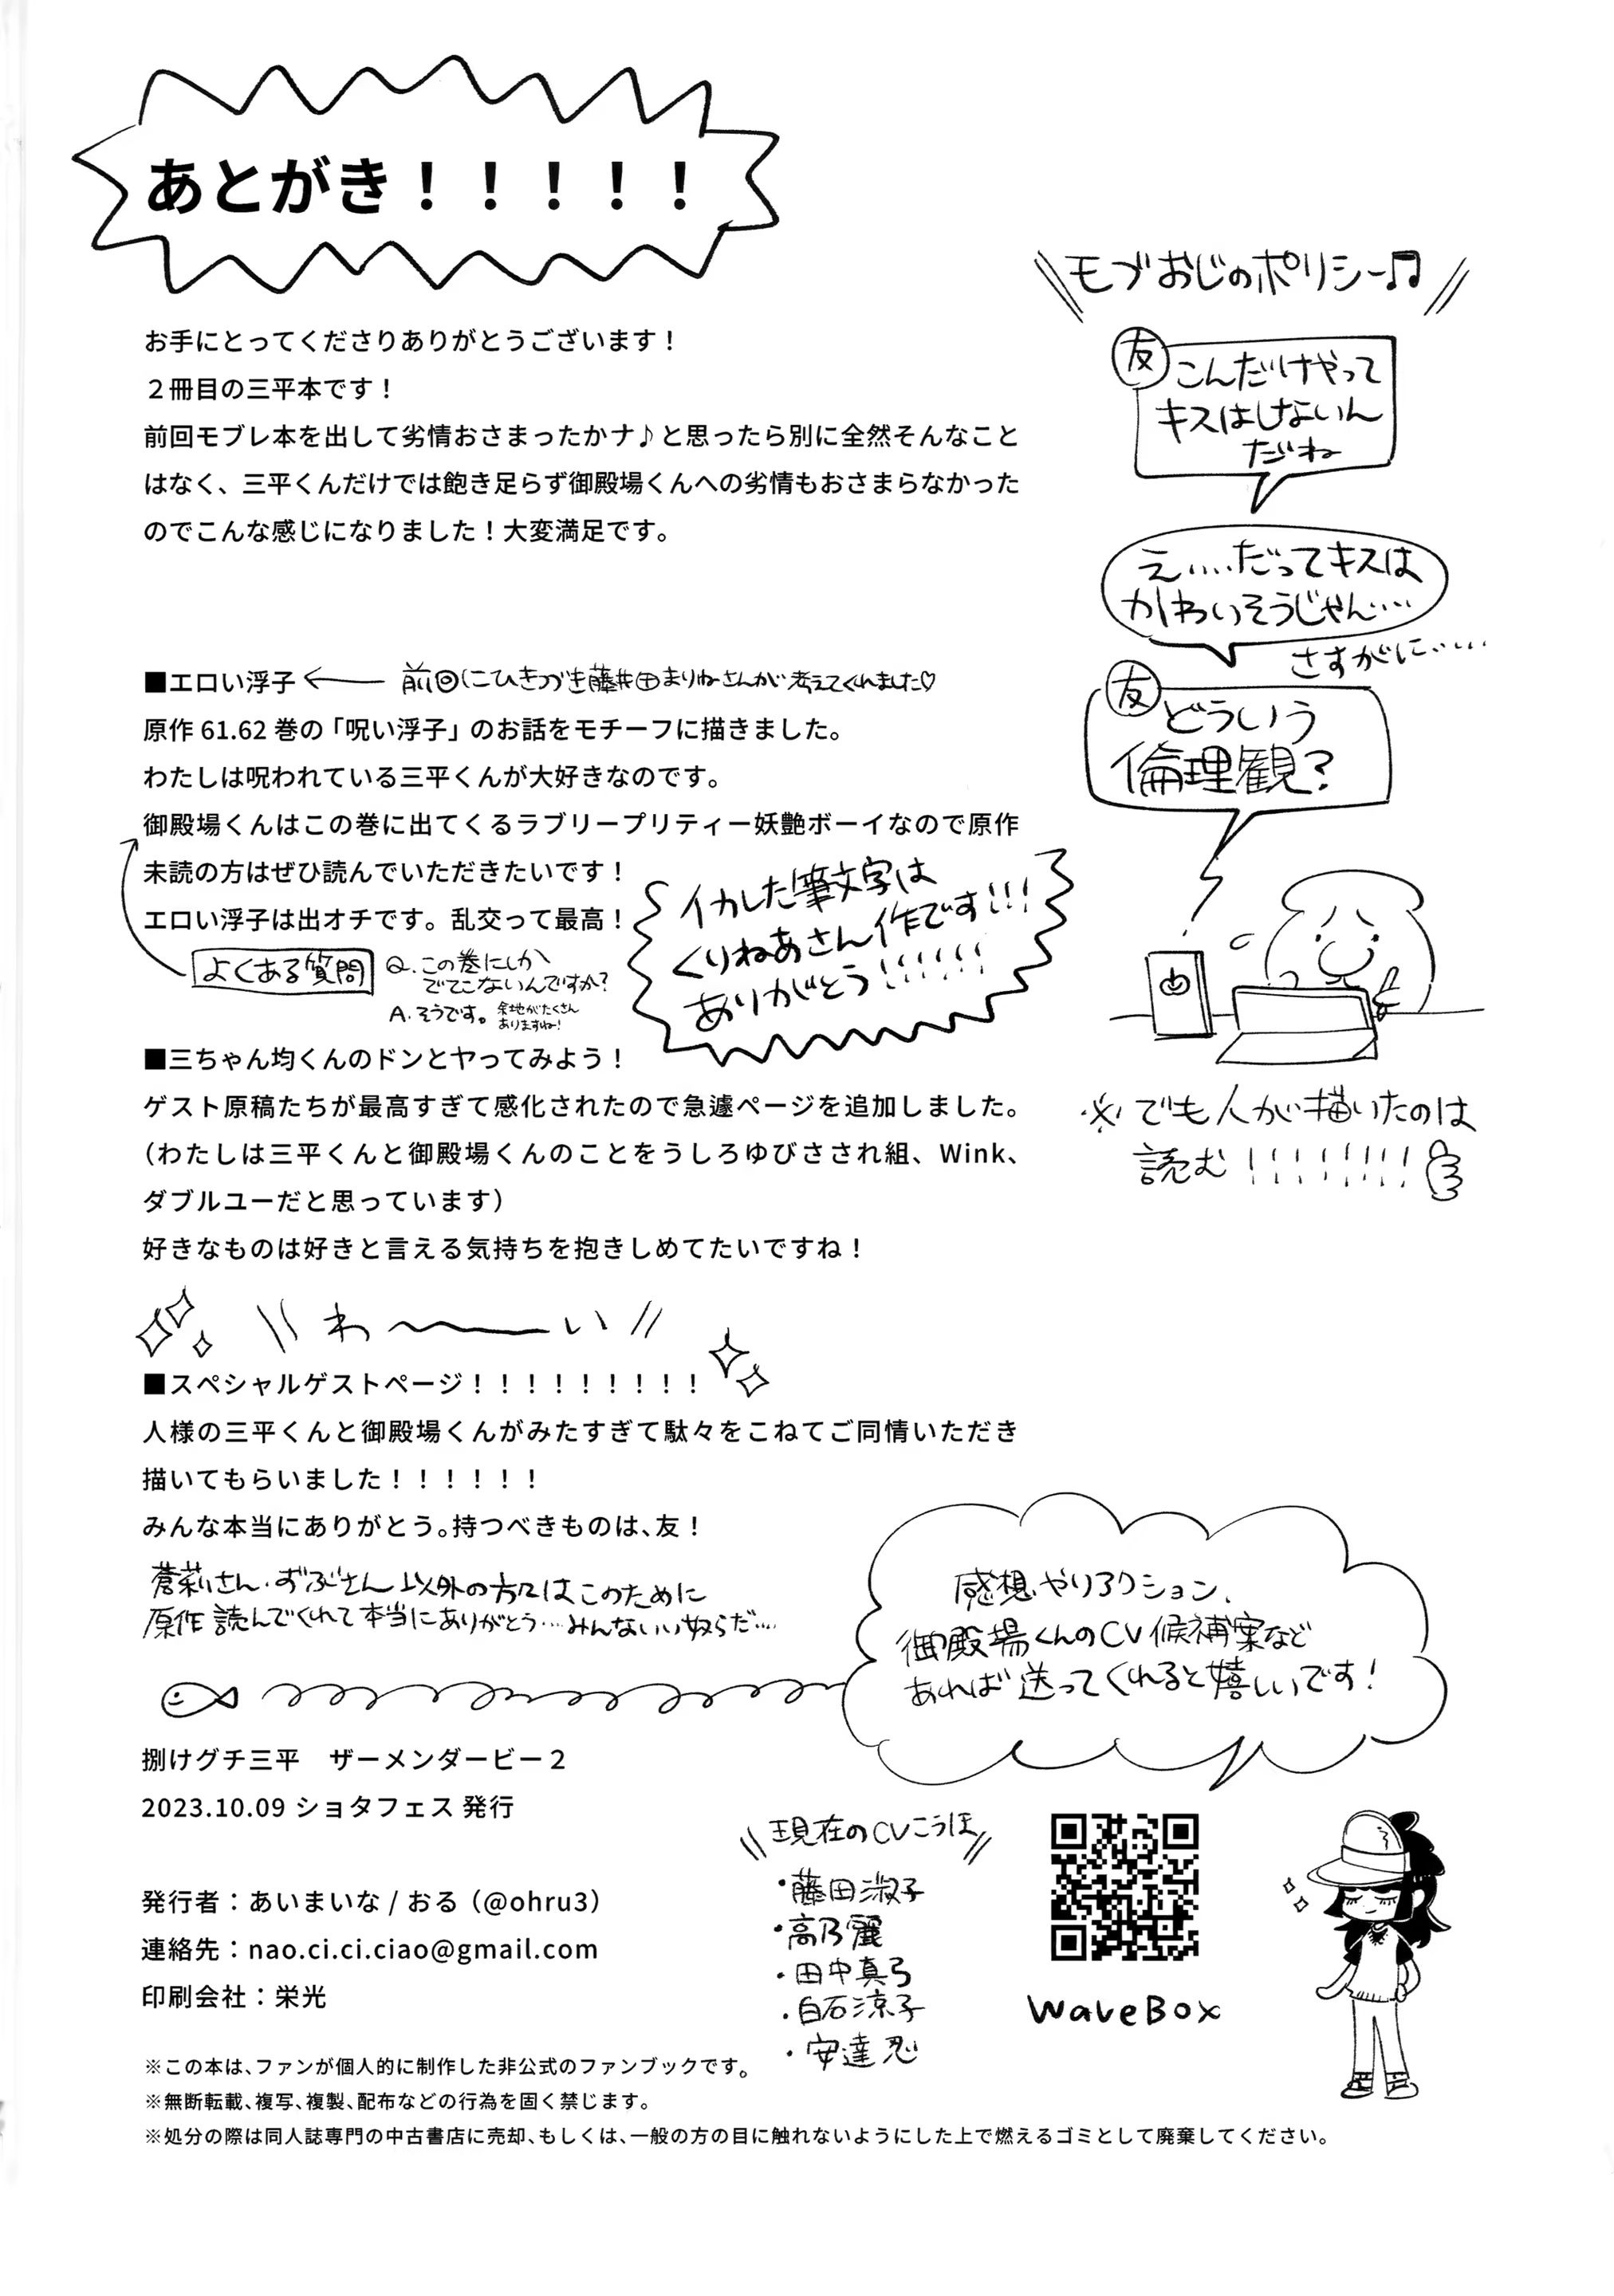 あとがき！！！！！
お手にとってくださりありがとうございます！
２冊目の三平本です！
前回モブレ本を出して劣情おさまったかナ♪と思ったら別に全然そんなこと
はなく、三平くんだけでは飽き足らず御殿場くんへの劣情もおさまらなかった
のでこんな感じになりました！大変満足です。
■エロい浮子 ← 前回にひきつづき藤井田まりねさんが考えてくれました♡
原作 61.62 巻の「呪い浮子」のお話をモチーフに描きました。
わたしは呪われている三平くんが大好きなのです。
御殿場くんはこの巻に出てくるラブリープリティー妖艶ボーイなので原作
未読の方はぜひ読んでいただきたいです！
エロい浮子は出オチです。乱交って最高！
よくある質問
Q.この巻にしか
でてこないんですか？
A.そうです。余地がたくさん
ありますね！
イカした筆文字は
くりねあさん作です!!!
ありがとう!!!!!!
■三ちゃん均くんのドンとヤってみよう！
ゲスト原稿たちが最高すぎて感化されたので急遽ページを追加しました。
（わたしは三平くんと御殿場くんのことをうしろゆびさされ組、Wink、
ダブルユーだと思っています）
好きなものは好きと言える気持ちを抱きしめてたいですね！
わ〜ーい
■スペシャルゲストページ！！！！！！！！！
人様の三平くんと御殿場くんがみたすぎて駄々をこねてご同情いただき
描いてもらいました！！！！！！
みんな本当にありがとう。持つべきものは、友！
さん・ずぶさん以外の方々はこのために
原作読んでくれて本当にありがとう…みんないい奴らだ…
モブおじのポリシー♫
友 こんだけやって
キスはしないん
だね
え….だってキスは
かわいそうじゃん…
さすがに……
友 どういう
倫理観？
※でも人が描いたのは
読む!!!!!!!!
感想やリアクション、
御殿場くんのCV候補案など
あれば送ってくれると嬉しいです！
捌けグチ三平　ザーメンダービー２
2023.10.09 ショタフェス 発行
発行者：あいまいな / おる（@ohru3）
連絡先：nao.ci.ci.ciao@gmail.com
印刷会社：栄光
現在のCVこうほ
・藤田淑子
・高乃麗
・田中真弓
・白石涼子
・安達忍
WaveBox
※この本は、ファンが個人的に制作した非公式のファンブックです。
※無断転載、複写、複製、配布などの行為を固く禁じます。
※処分の際は同人誌専門の中古書店に売却、もしくは、一般の方の目に触れないようにした上で燃えるゴミとして廃棄してください。